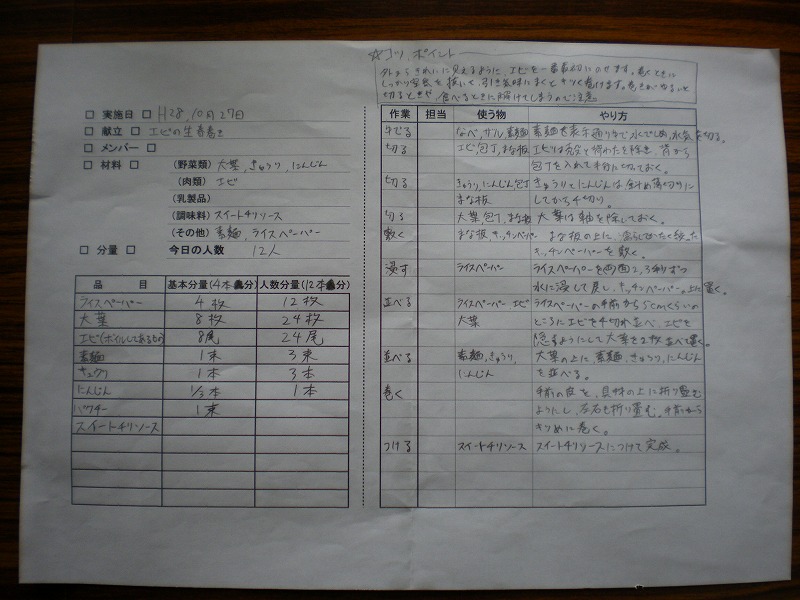 ☆コツ、ポイント
外からきれいに見えるように、エビを一番最初にのせます。巻くときは
しっかり空気を抜いて、引き気味にまくとキツく巻けます。巻きがゆるいと
切るときや、食べるときに解けてしまうので注意
□ 実施日 □ H28,10月27日
□ 献立 □ エビの生春巻き
□ メンバー □
□ 材料 □ (野菜類) 大葉、きゅうり、にんじん
(肉類) エビ
(乳製品)
(調味料) スイートチリソース
(その他) 素麺、ライスペーパー
□ 分量 □ 今日の人数 12人
品目 基本分量(4本分) 人数分量(12本分)
ライスペーパー 4枚 12枚
大葉 8枚 24枚
エビ(ボイルしてあるもの) 8尾 24尾
素麺 1束 3束
キュウリ 1本 3本
にんじん 1/3本 1本
パクチー 1束
スイートチリソース
作業 担当 使う物 やり方
ゆでる なべ、ザル、素麺 素麺を表示通りゆで、水でしめ、水気を切る。
切る エビ包丁、まな板 エビは壳と背わたを除き、背から
包丁を入れて半分に切っておく。
切る きゅうり、にんじん包丁 きゅうりとにんじんは斜め薄切りに
まな板 してから千切り。
切る 大葉包丁、まな板 大葉は軸を除しておく。
敷く まな板、キッチンペーパー まな板の上に、濡らしてかたく絞った
キッチンペーパーを敷く。
浸す ライスペーパー ライスペーパーを両面2,3秒ずつ
水に浸して戻し、キッチンペーパー上に置く。
並べる ライスペーパー エビ ライスペーパーの手前から5cmくらいの
大葉 ところにエビを4切れ並べ、エビを
隠すようにして大葉を2枚並べて置く。
並べる 素麺、きゅうり、 大葉の上に、素麺、きゅうり、にんじん
にんじん を並べる。
巻く 手前の皮を、具材の上に折り畳む
ようにし、左右を折り畳む。手前から
きつめに巻く。
つける スイートチリソース スイートチリソースにつけて完成。